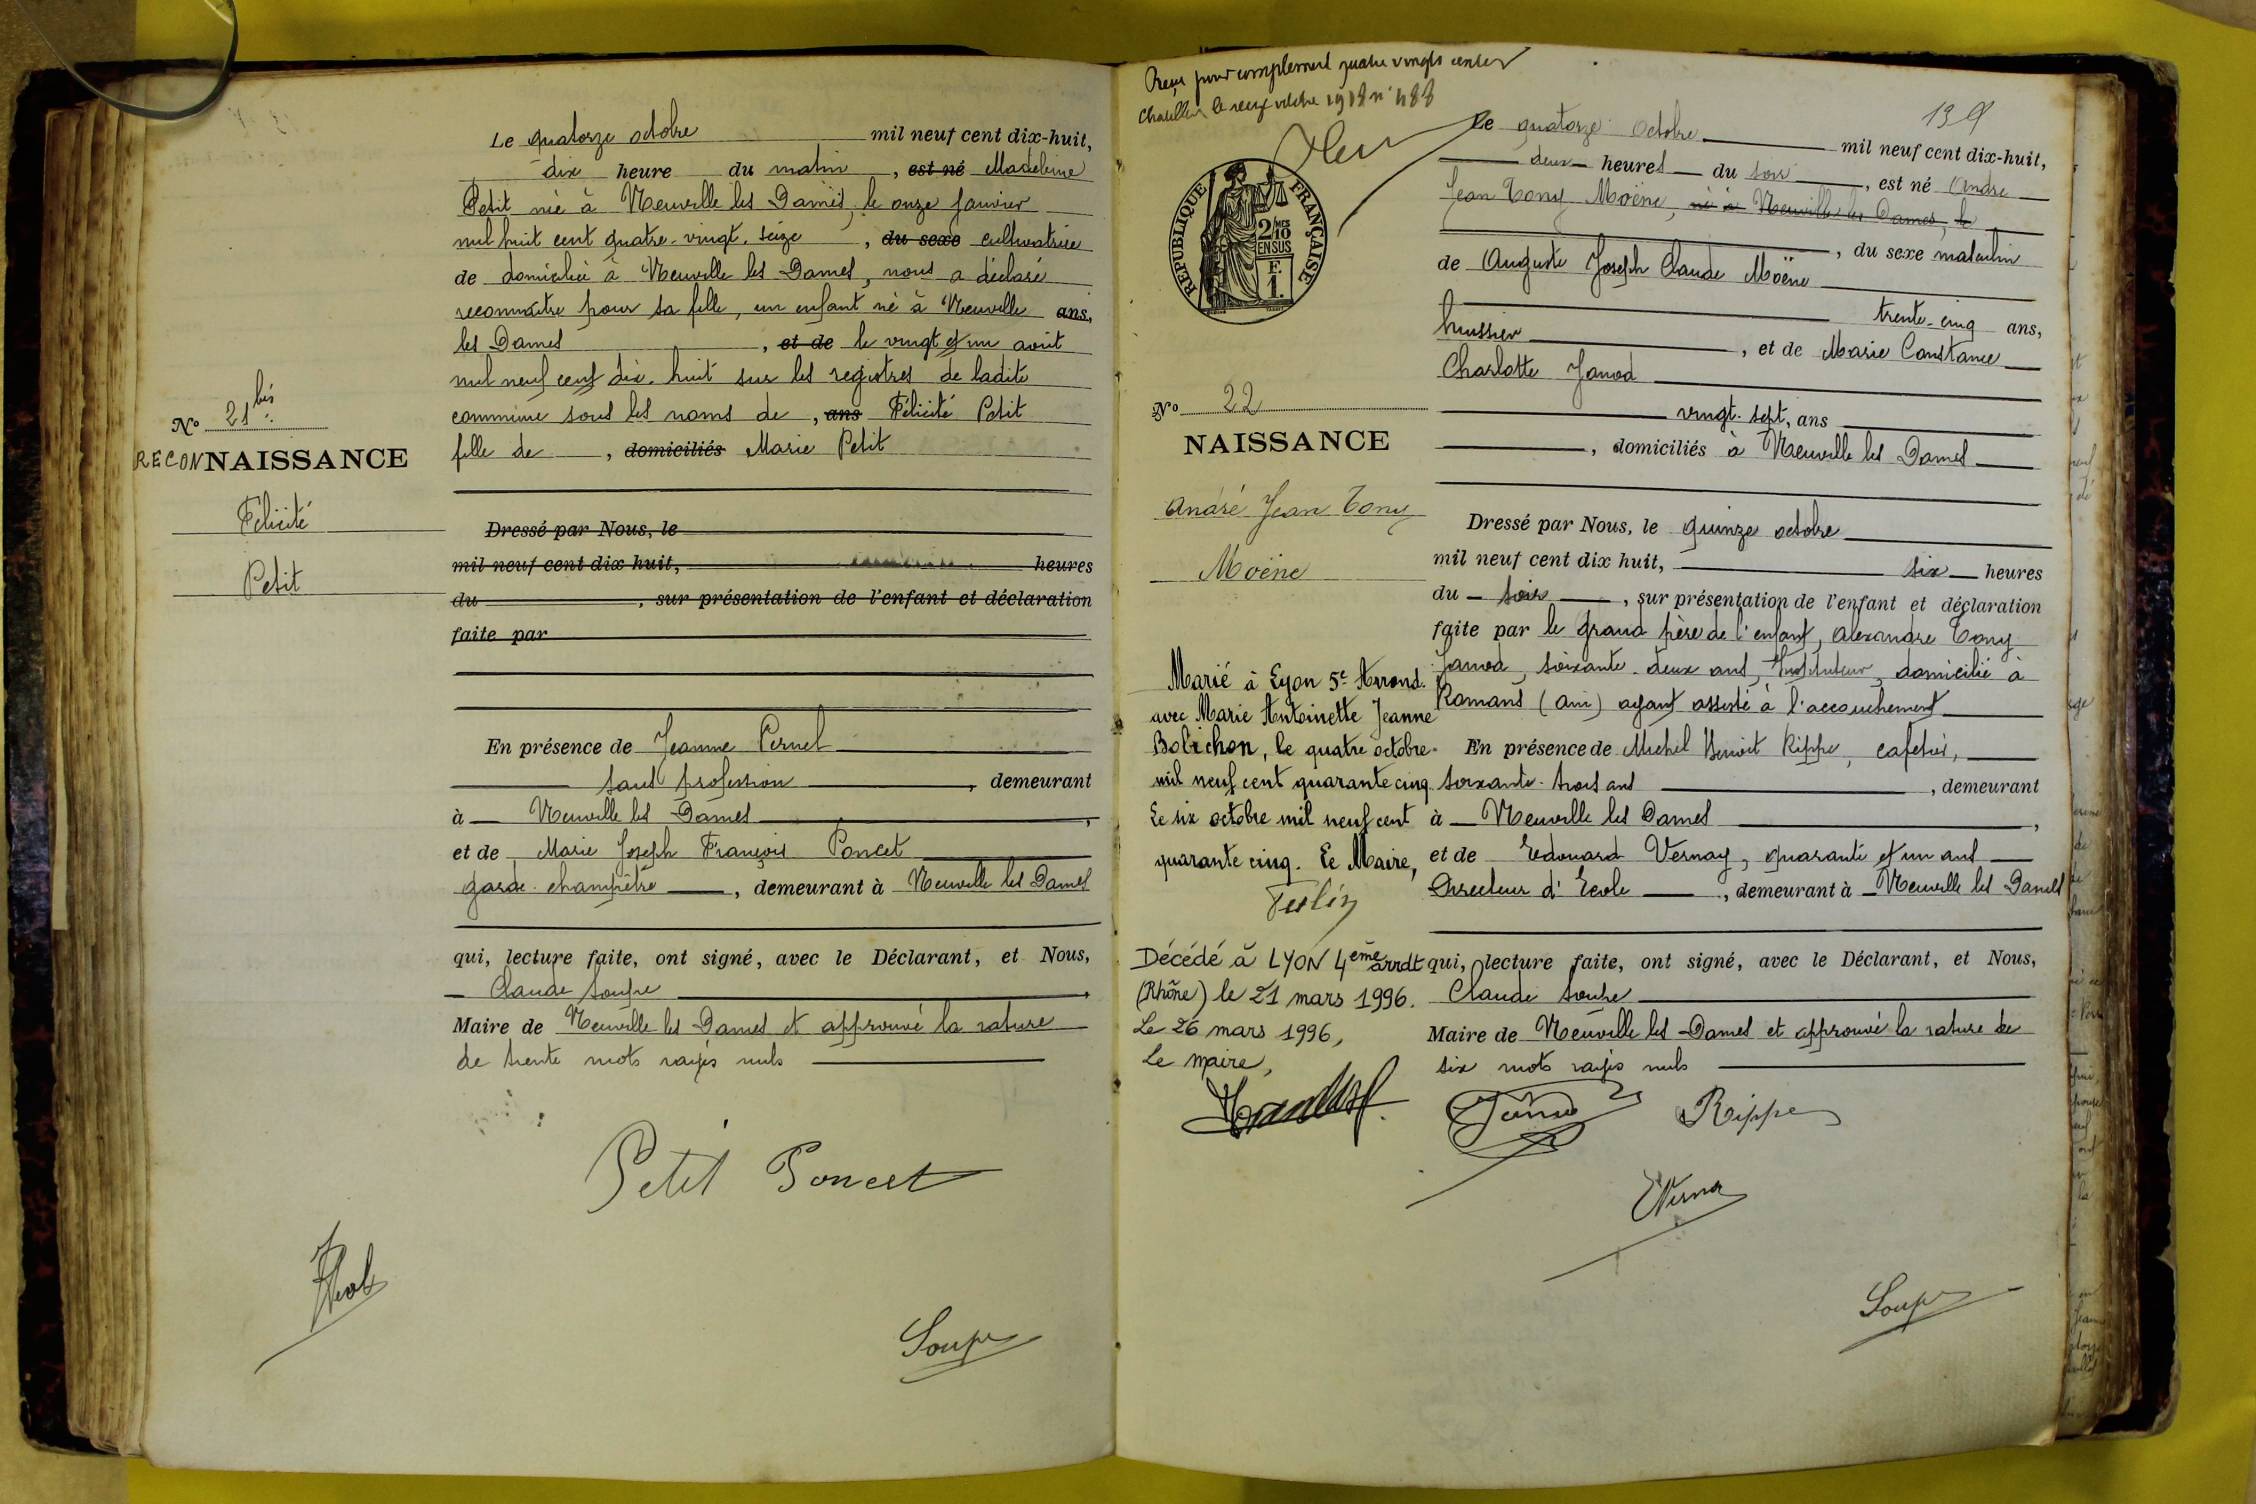 Le quatorze octobre mil neuf cent dix-huit,
dix heure du matin, est né Madeleine
Petit née à Neuville les Dames, le onze Janvier
mil huit cent quatre-vingt-seize, du sexe cultivatrice
de domiciliée à Neuville les Dames, nous a déclaré
reconnaitre pour sa fille, un enfant né à Neuville ans,
les Dames, et de le vingt et un août
mil neuf cent dix-huit sur les registres de ladite
commune sous les noms de, ans Félicité Petit
fille de, domiciliés Marie Petit
N° 21 bis
RECONNAISSANCE
Félicité
Petit
Dressé par Nous, le
mil neuf cent dix huit, heures
du, sur présentation de l'enfant et déclaration
faite par
En présence de Jeanne
sans profession, demeurant
à Neuville les Dames,
et de Marie Joseph François Poncet
garde-champêtre, demeurant à Neuville les Dames
qui, lecture faite, ont signé, avec le Déclarant, et Nous,
Claude Soupe,
Maire de Neuville les Dames et approuvé la rature
de trente mots rayés nuls
Petit Poncet
Soupe
Reçu pour complement quatre vingts centes
Chatillon le neuf 1918 n° 488
139
RÉPUBLIQUE FRANÇAISE
2/10MES
EN SUS
F.
1.
Le quatorze octobre mil neuf cent dix-huit,
deux heures du soir, est né André
Jean Tony Moëne, né à Neuville les Dames, le
, du sexe masculin
de Auguste Joseph Claude Moëne
trente-cinq ans,
huissier, et de Marie Constance
Charlotte Janod
vingt-sept, ans
, domiciliés à Neuville les Dames
N° 22
NAISSANCE
André Jean Tony
Moëne
Dressé par Nous, le quinze octobre
mil neuf cent dix huit, six heures
du soir, sur présentation de l'enfant et déclaration
faite par le grand père de l'enfant, Alexandre Tony
Janod, soixante-deux ans, Instituteur, domicilié à
Romans (Ain) ayant assisté à l'accouchement
En présence de Michel Benoit Rippe, cafetier,
soixante-trois ans, demeurant
à Neuville les Dames,
et de Edouard Vernay, quarante et un ans
Directeur d'Ecole, demeurant à Neuville les Dames
qui, lecture faite, ont signé, avec le Déclarant, et Nous,
Claude Soupe
Maire de Neuville les Dames et approuvé la rature de
six mots rayés nuls
Marié à Lyon 5e Arrond.
avec Marie Antoinette Jeanne
Bolichon, le quatre octobre
mil neuf cent quarante cinq.
Le six octobre mil neuf cent
quarante cinq. Le Maire,
Décédé à LYON 4ème arrdt
(Rhône) le 21 mars 1996.
Le 26 mars 1996,
Le maire,
Janod Rippe
Vernay
Soupe